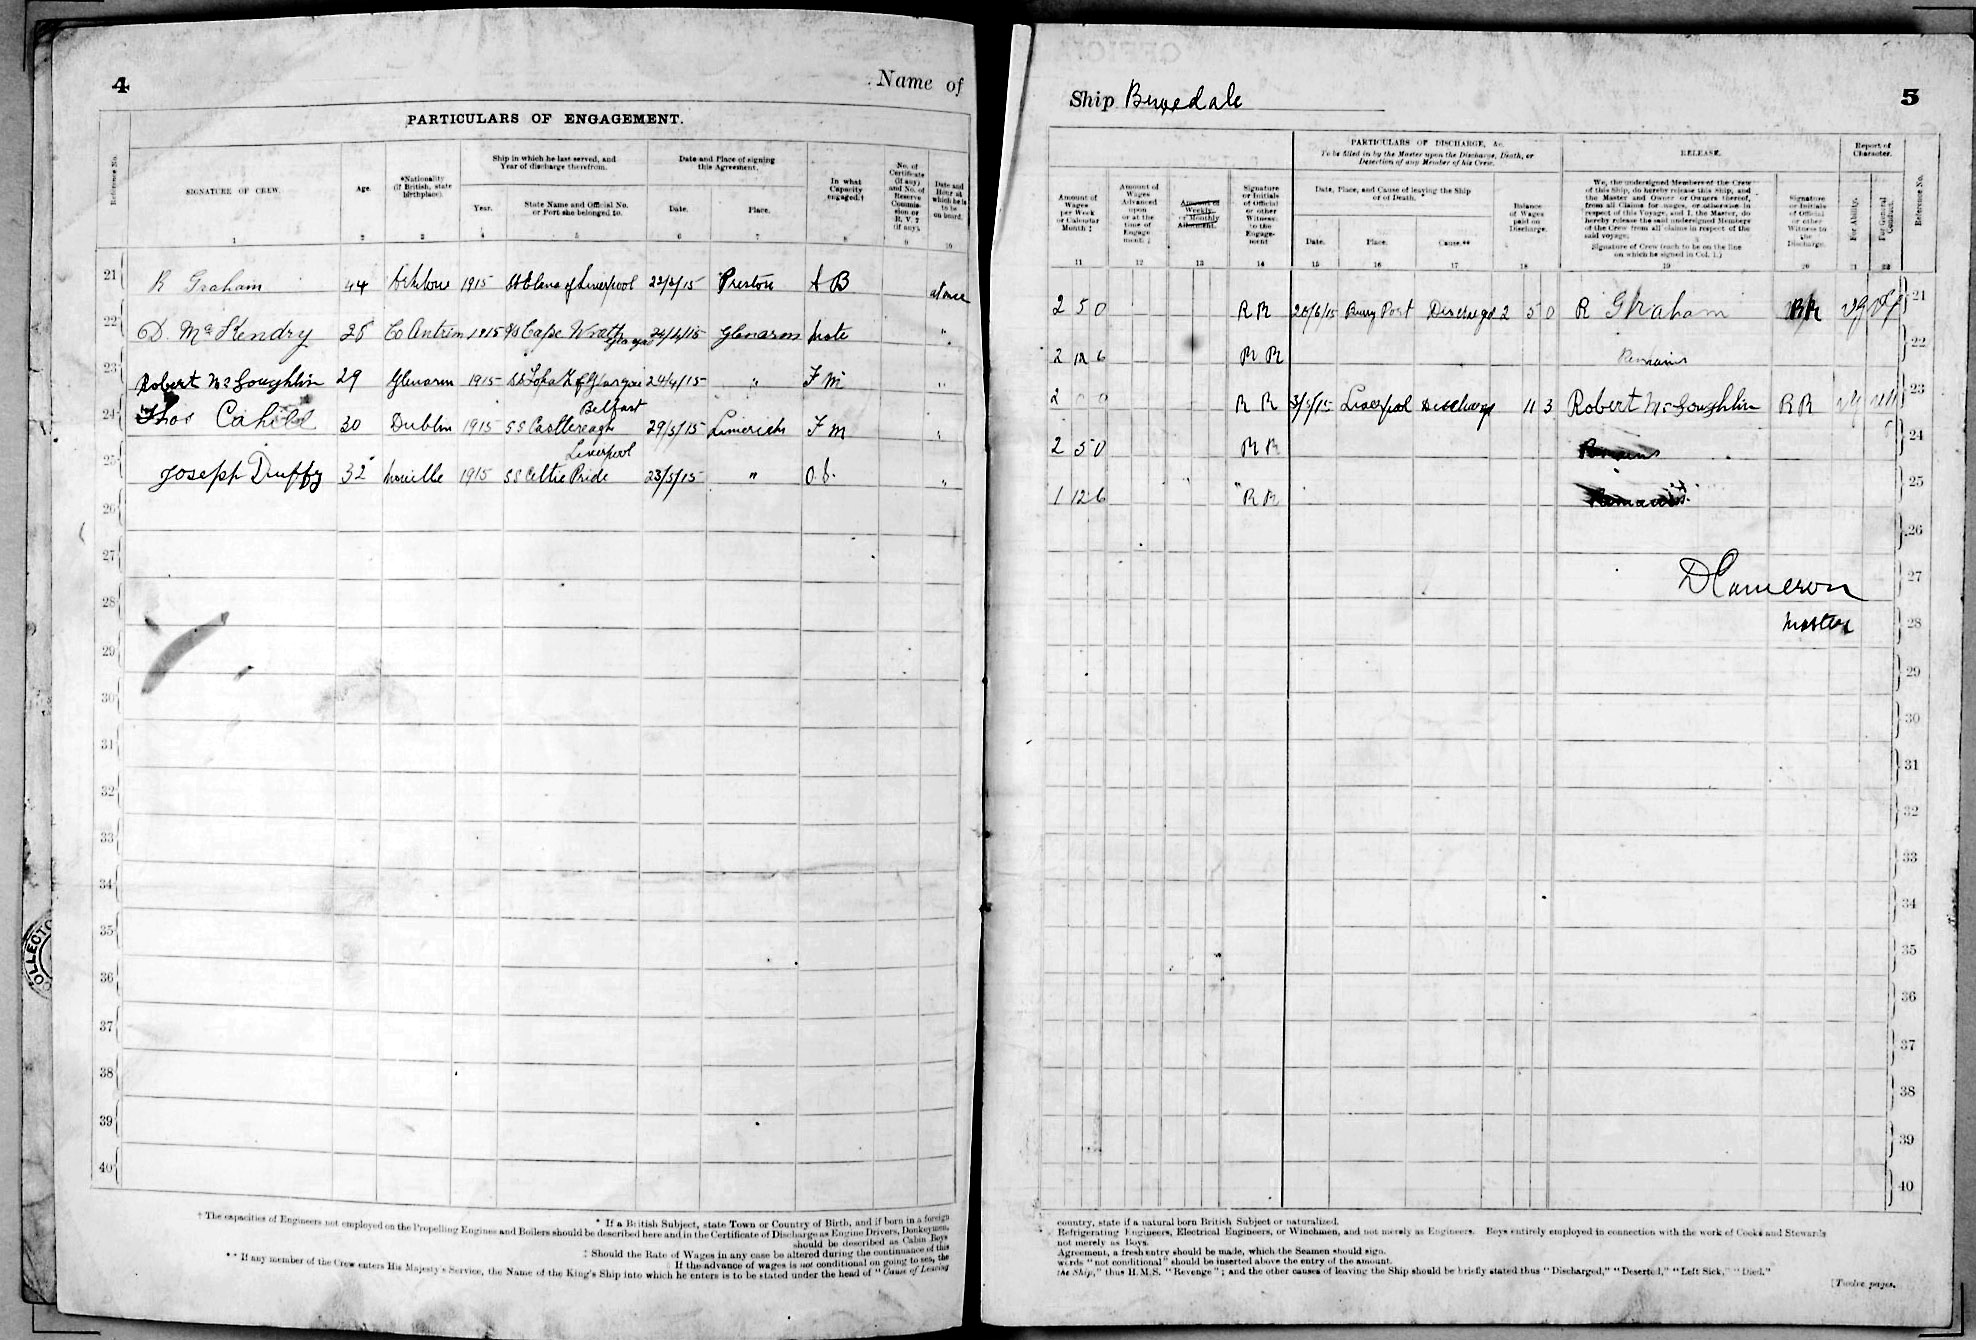 4
Name of
PARTICULARS OF ENGAGEMENT.
Reference No.
SIGNATURE OF CREW.
Age.
*Nationality (if British, state birthplace).
Ship in which he last served, and Year of discharge therefrom.
Year.
State Name and Official No. or Port she belonged to.
Date and Place of signing this Agreement.
Date.
Place.
In what Capacity engaged.†
No. of Certificate (if any) and No. of Reserve Commission or R.V. 2 (if any).
Date and Hour at which he is to be on board.
1 2 3 4 5 6 7 8 9 10
21 R Graham 44 Arklow 1915 St Elena of Liverpool 22/2/15 Preston A B at once
22 D. McKendry 28 Co Antrim 1915 Cape Wrath Glasgow 24/4/15 Glenarm Mate "
23 Robert McLoughlin 29 Glenarm 1915 SS of Glasgow 24/4/15 " F M "
24 Thos Cahill 30 Dublin 1915 SS Castlereagh Belfast 29/5/15 Limerick F M "
25 Joseph Duffy 32 1915 SS Celtic Pride Liverpool 23/5/15 " O.S. "
26
27
28
29
30
31
32
33
34
35
36
37
38
39
40
* If a British Subject, state Town or Country of Birth, and if born in a foreign
† The capacities of Engineers not employed on the Propelling Engines and Boilers should be described here and in the Certificate of Discharge as Engine Drivers, Donkeymen,
should be described as Cabin Boys
‡ Should the Rate of Wages in any case be altered during the continuance of this
If the advance of wages is not conditional on going to sea, the
** If any member of the Crew enters His Majesty's Service, the Name of the King's Ship into which he enters is to be stated under the head of "Cause of Leaving
COLLECTO
Ship
5
PARTICULARS OF DISCHARGE, &c.
To be filled in by the Master upon the Discharge, Death, or Desertion of any Member of his Crew.
RELEASE.
Report of Character.
Amount of Wages per Week or Calendar Month ‡
Amount of Wages Advanced upon or at the time of Engagement.
Amount of Weekly or Monthly Allotment.
Signature or Initials of Official or other Witness to the Engagement
Date, Place, and Cause of leaving the Ship or of Death.
Date.
Place.
Cause.**
Balance of Wages paid on Discharge.
We, the undersigned Members of the Crew of this Ship, do hereby release this Ship, and the Master and Owner or Owners thereof, from all Claims for wages, or otherwise in respect of this Voyage, and I, the Master, do hereby release the said undersigned Members of the Crew from all claims in respect of the said voyage:
Signature of Crew (each to be on the line on which he signed in Col. 1.)
Signature or Initials of Official or other Witness to the Discharge.
For Ability.
For General Conduct.
Reference No.
11 12 13 14 15 16 17 18 19 20 21 22
2 5 0 R R 20/6/15 Burry Port Discharged 2 5 0 R Graham RR Vg Vg 21
2 12 6 R R Remains 22
2 R R Liverpool Discharge 11 3 Robert McLoughlin R R Vg 23
2 5 0 R R Remains 24
1 12 6 R R Remains 25
26
27
D Cameron
28
Master
29
30
31
32
33
34
35
36
37
38
39
40
country, state if a natural born British Subject or naturalized.
Refrigerating Engineers, Electrical Engineers, or Winchmen, and not merely as Engineers. Boys entirely employed in connection with the work of Cooks and Stewards
not merely as Boys.
Agreement, a fresh entry should be made, which the Seamen should sign.
words "not conditional" should be inserted above the entry of the amount.
the Ship," thus H.M.S. "Revenge"; and the other causes of leaving the Ship should be briefly stated thus "Discharged," "Deserted," "Left Sick," "Died."
[Twelve pages.